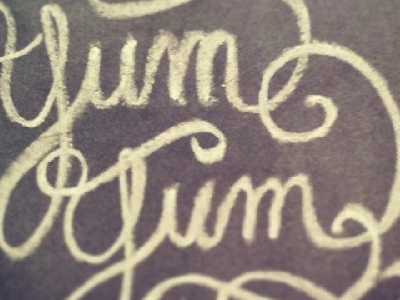 yum
yum